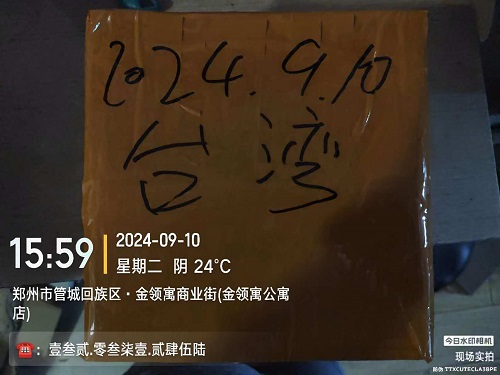 2024.9.10
台湾
15:59
2024-09-10
星期二 阴 24°C
郑州市管城回族区·金领寓商业街(金领寓公寓
店)
：壹叁贰.零叁柒壹.贰肆伍陆
今日水印相机
现场实拍
防伪 TTXCUTECLA38PE